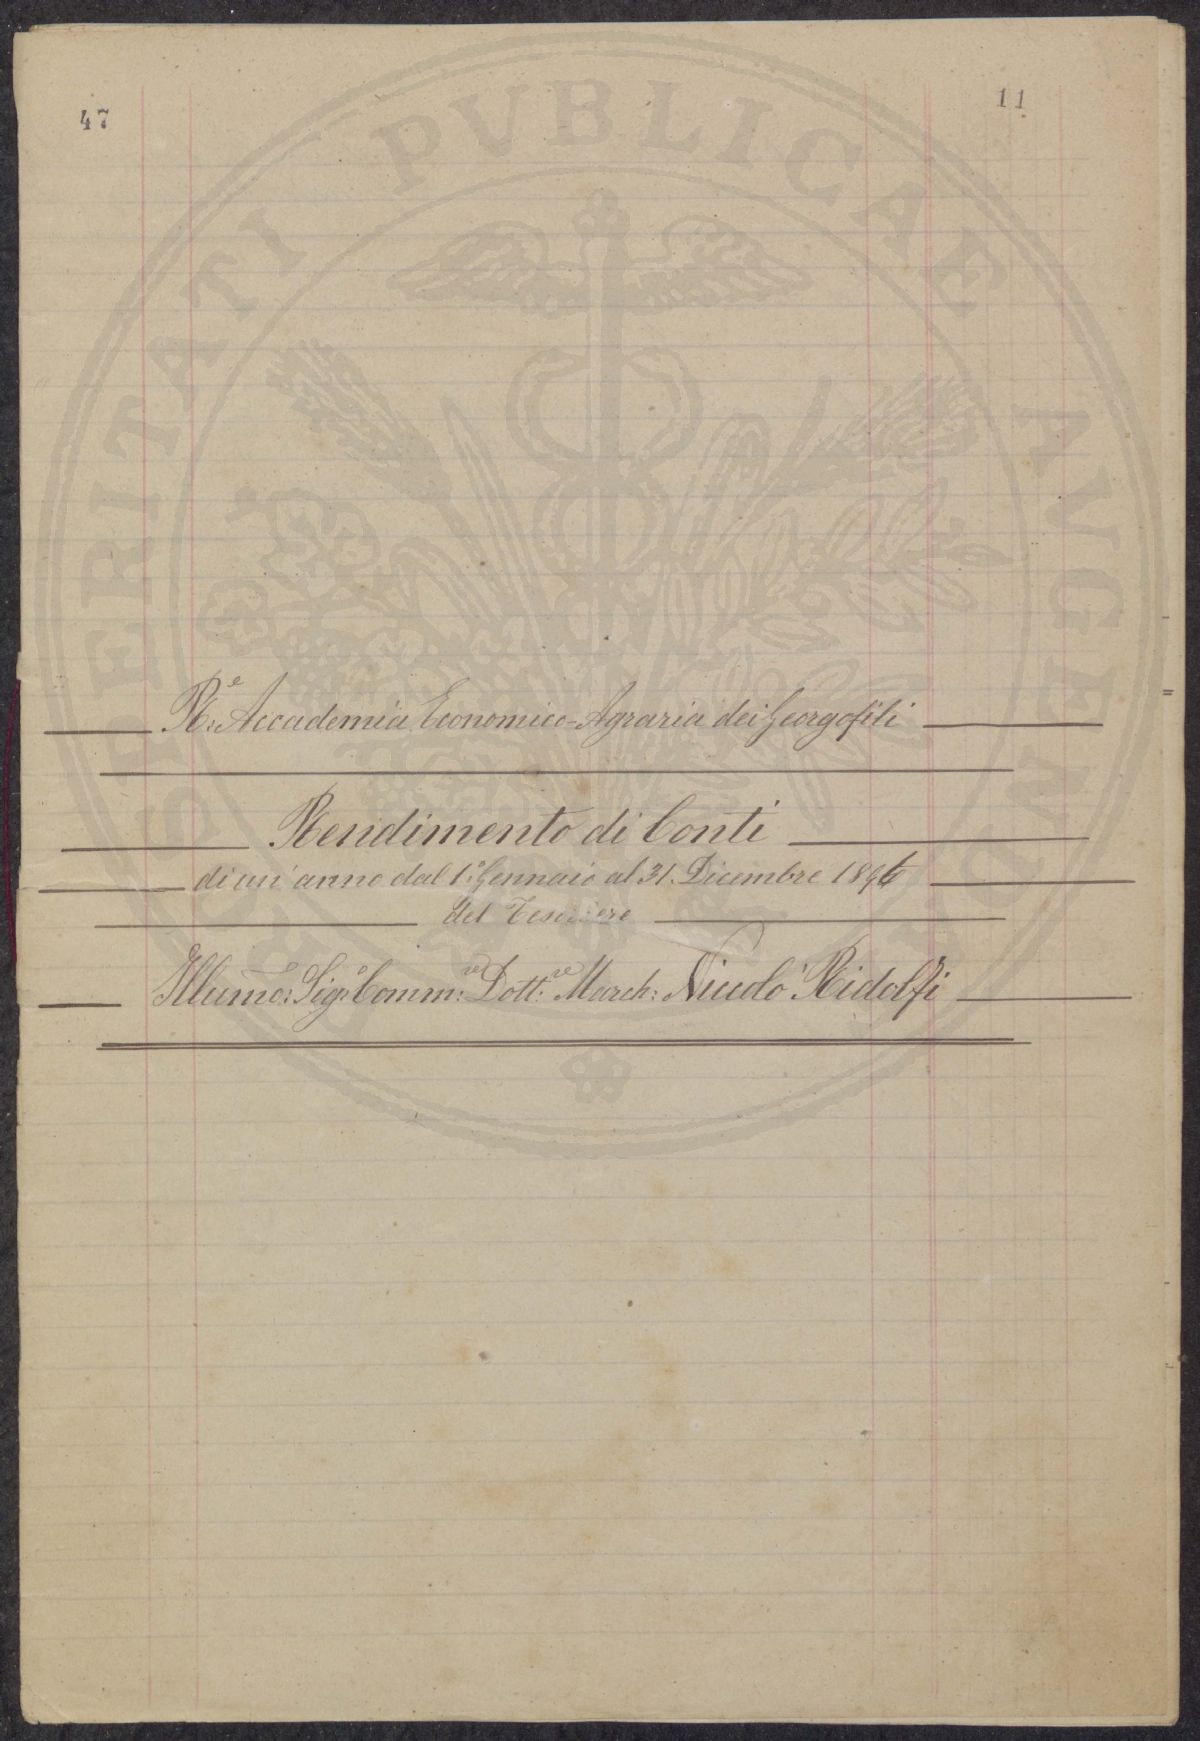 47
11
PROSPERITATI PVBLICAE AVGENDAE
R.e Accademia Economico-Agraria dei Georgofili
Rendimento di Conti
di un'anno dal 1.° Gennaio al 31. Dicembre
del Tesoriere
Illumo: Sig.o Comm:re Dott:re March: Niccolò Ridolfi